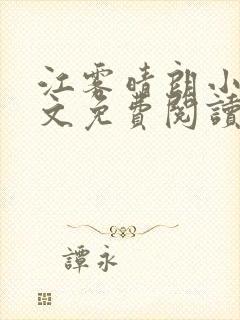 江雾晴朗小
文免費閱讀
譚永